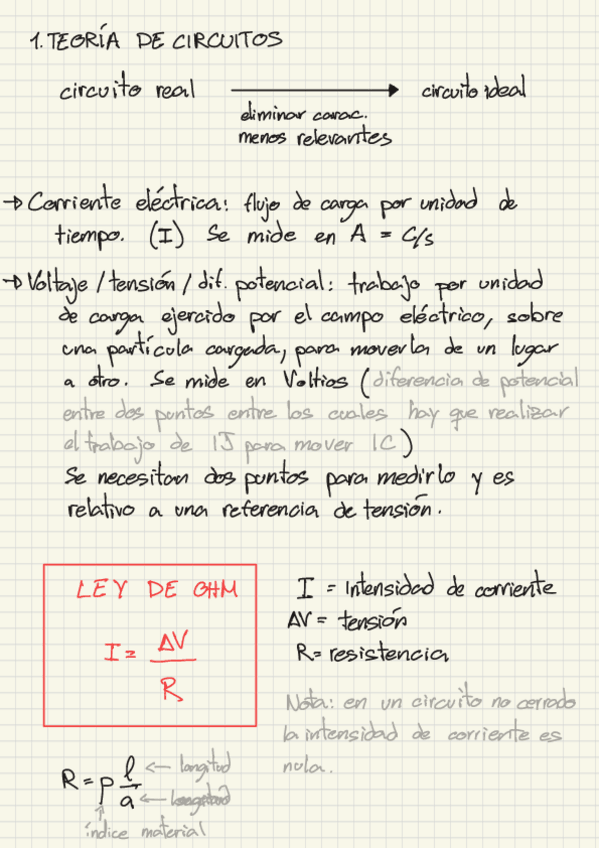 1. TEORÍA DE CIRCUITOS
circuito real → circuito ideal
eliminar carac.
menos relevantes
→ Corriente eléctrica: flujo de carga por unidad de
tiempo. (I) Se mide en A = C/s
→ Voltaje / tensión / dif. potencial: trabajo por unidad
de carga ejercido por el campo eléctrico, sobre
una partícula cargada, para moverla de un lugar
a otro. Se mide en Voltios (diferencia de potencial
entre dos puntos entre los cuales hay que realizar
el trabajo de 1J para mover 1C)
Se necesitan dos puntos para medirlo y es
relativo a una referencia de tensión.
LEY DE OHM
I = ΔV / R
I = Intensidad de corriente
ΔV = tensión
R = resistencia
Nota: en un circuito no cerrado
la intensidad de corriente es
nula.
R = ρ l / a
← longitud
←
↑
índice material